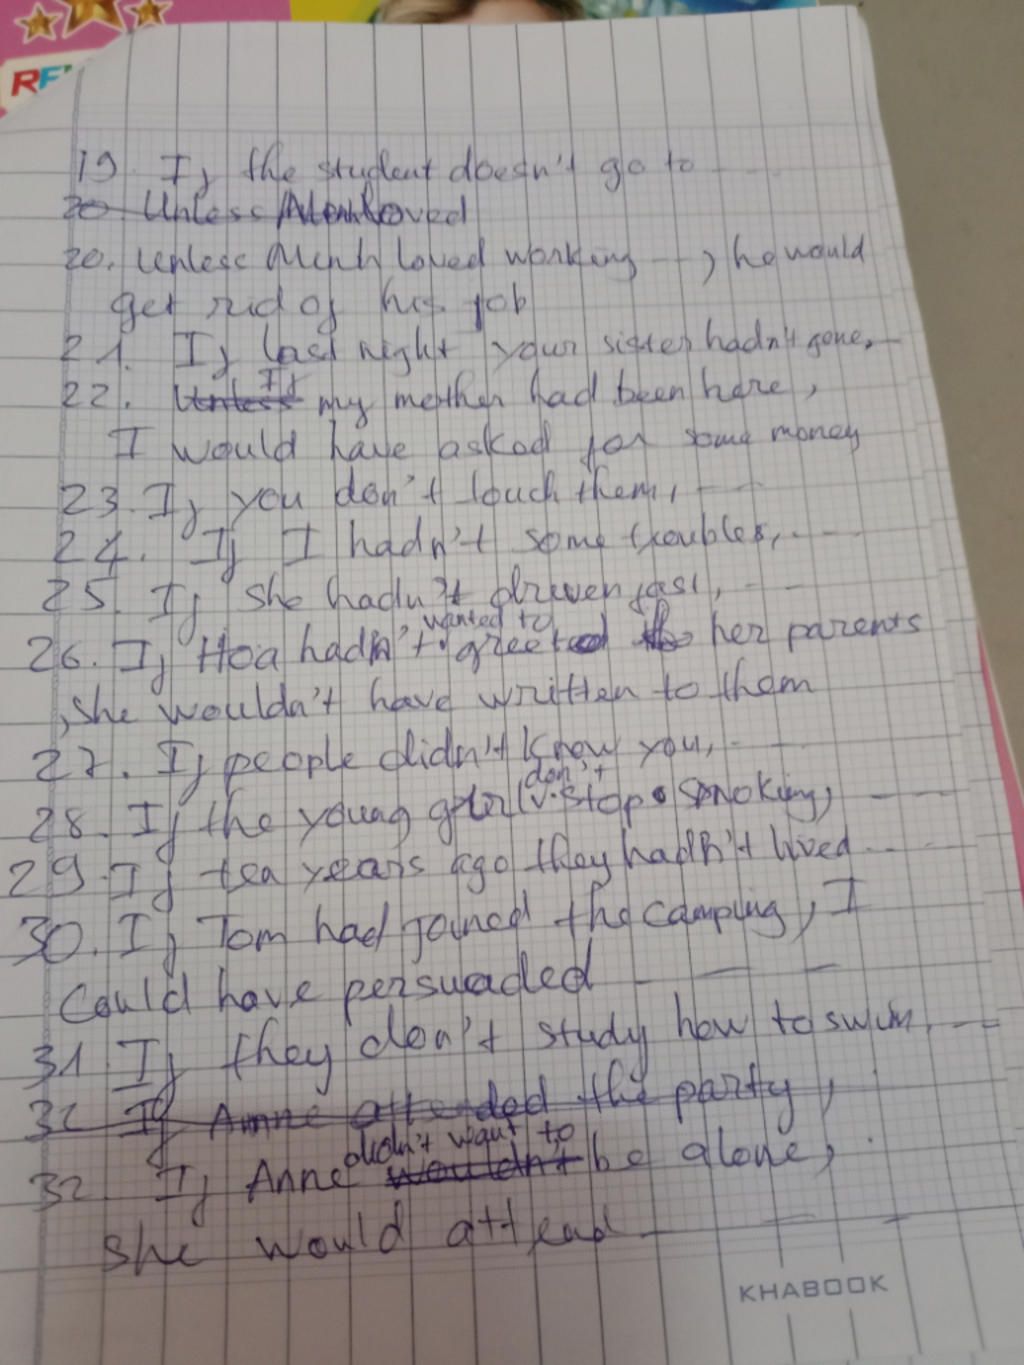 RE
19. If the student doesn't go to
20 Unless Minh loved
20. Unless Minh loved working --, he would
get rid of his job
21. If last night your sister hadn't gone, —
22. Unless If my mother had been here,
I would have asked for some money
23. If you don't touch them, --
24. If I hadn't some troubles, ---
25. If she hadn't driven fast, --
wanted to
26. If Hoa hadn't greeted her parents
, she wouldn't have written to them
27. If people didn't know you, --
don't
28. If the young girl stop smoking, --
29. If ten years ago they hadn't lived ---
30. If Tom had joined the camping, I
Could have persuaded — — —
31 If they don't study how to swim, —
32 If Anne attended the party,
didn't want to
32 If Anne wouldn't be alone,
she would attend — — —
KHABOOK